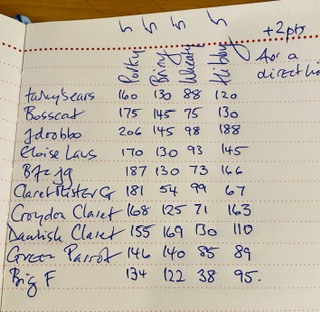 +2pts
for a
direct
Porky Briny Wheaty Hibby
175 145 75 130
Bosscat
160 130 88 120
Jdrobbo 206 145 98 188
Eloise Laws 170 130 93 145
187 130 73 166
181 54 99 67
Croydon Claret 168 125 71 163
Dawlish Claret 155 169 130 110
Green Parrot 146 140 85 89
Big F 134 122 38 95.